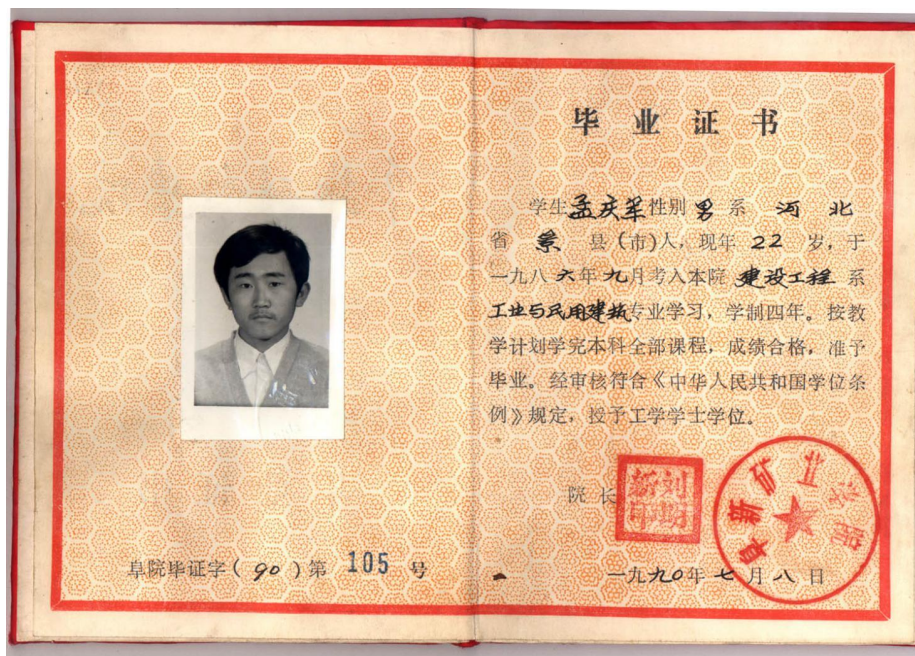 毕业证书
学生孟庆军性别男系 河北
省 景 县(市)人，现年 22 岁，于
一九八六年九月考入本院 建设工程 系
工业与民用建筑专业学习，学制四年。按教
学计划学完本科全部课程，成绩合格，准予
毕业。经审核符合《中华人民共和国学位条
例》规定，授予工学学士学位。
院长
阜新矿业学院
一九九〇年七月八日
阜院毕证字(90)第 105 号